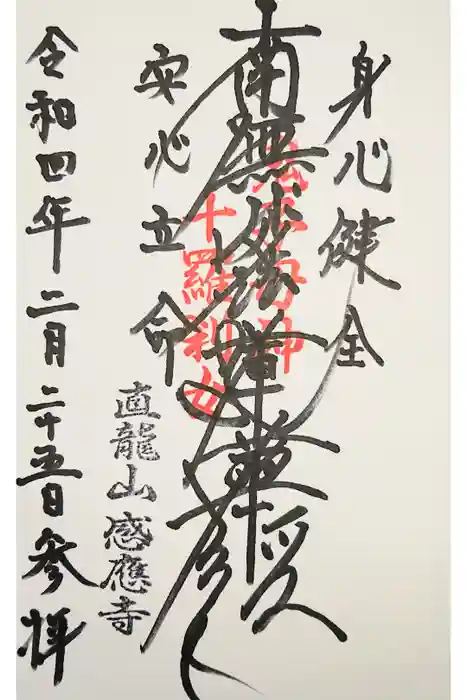 身心健全
南無妙法蓮華經
鬼子母神
十羅刹女
安心立命
直龍山 感應寺
令和四年二月二十五日参拝